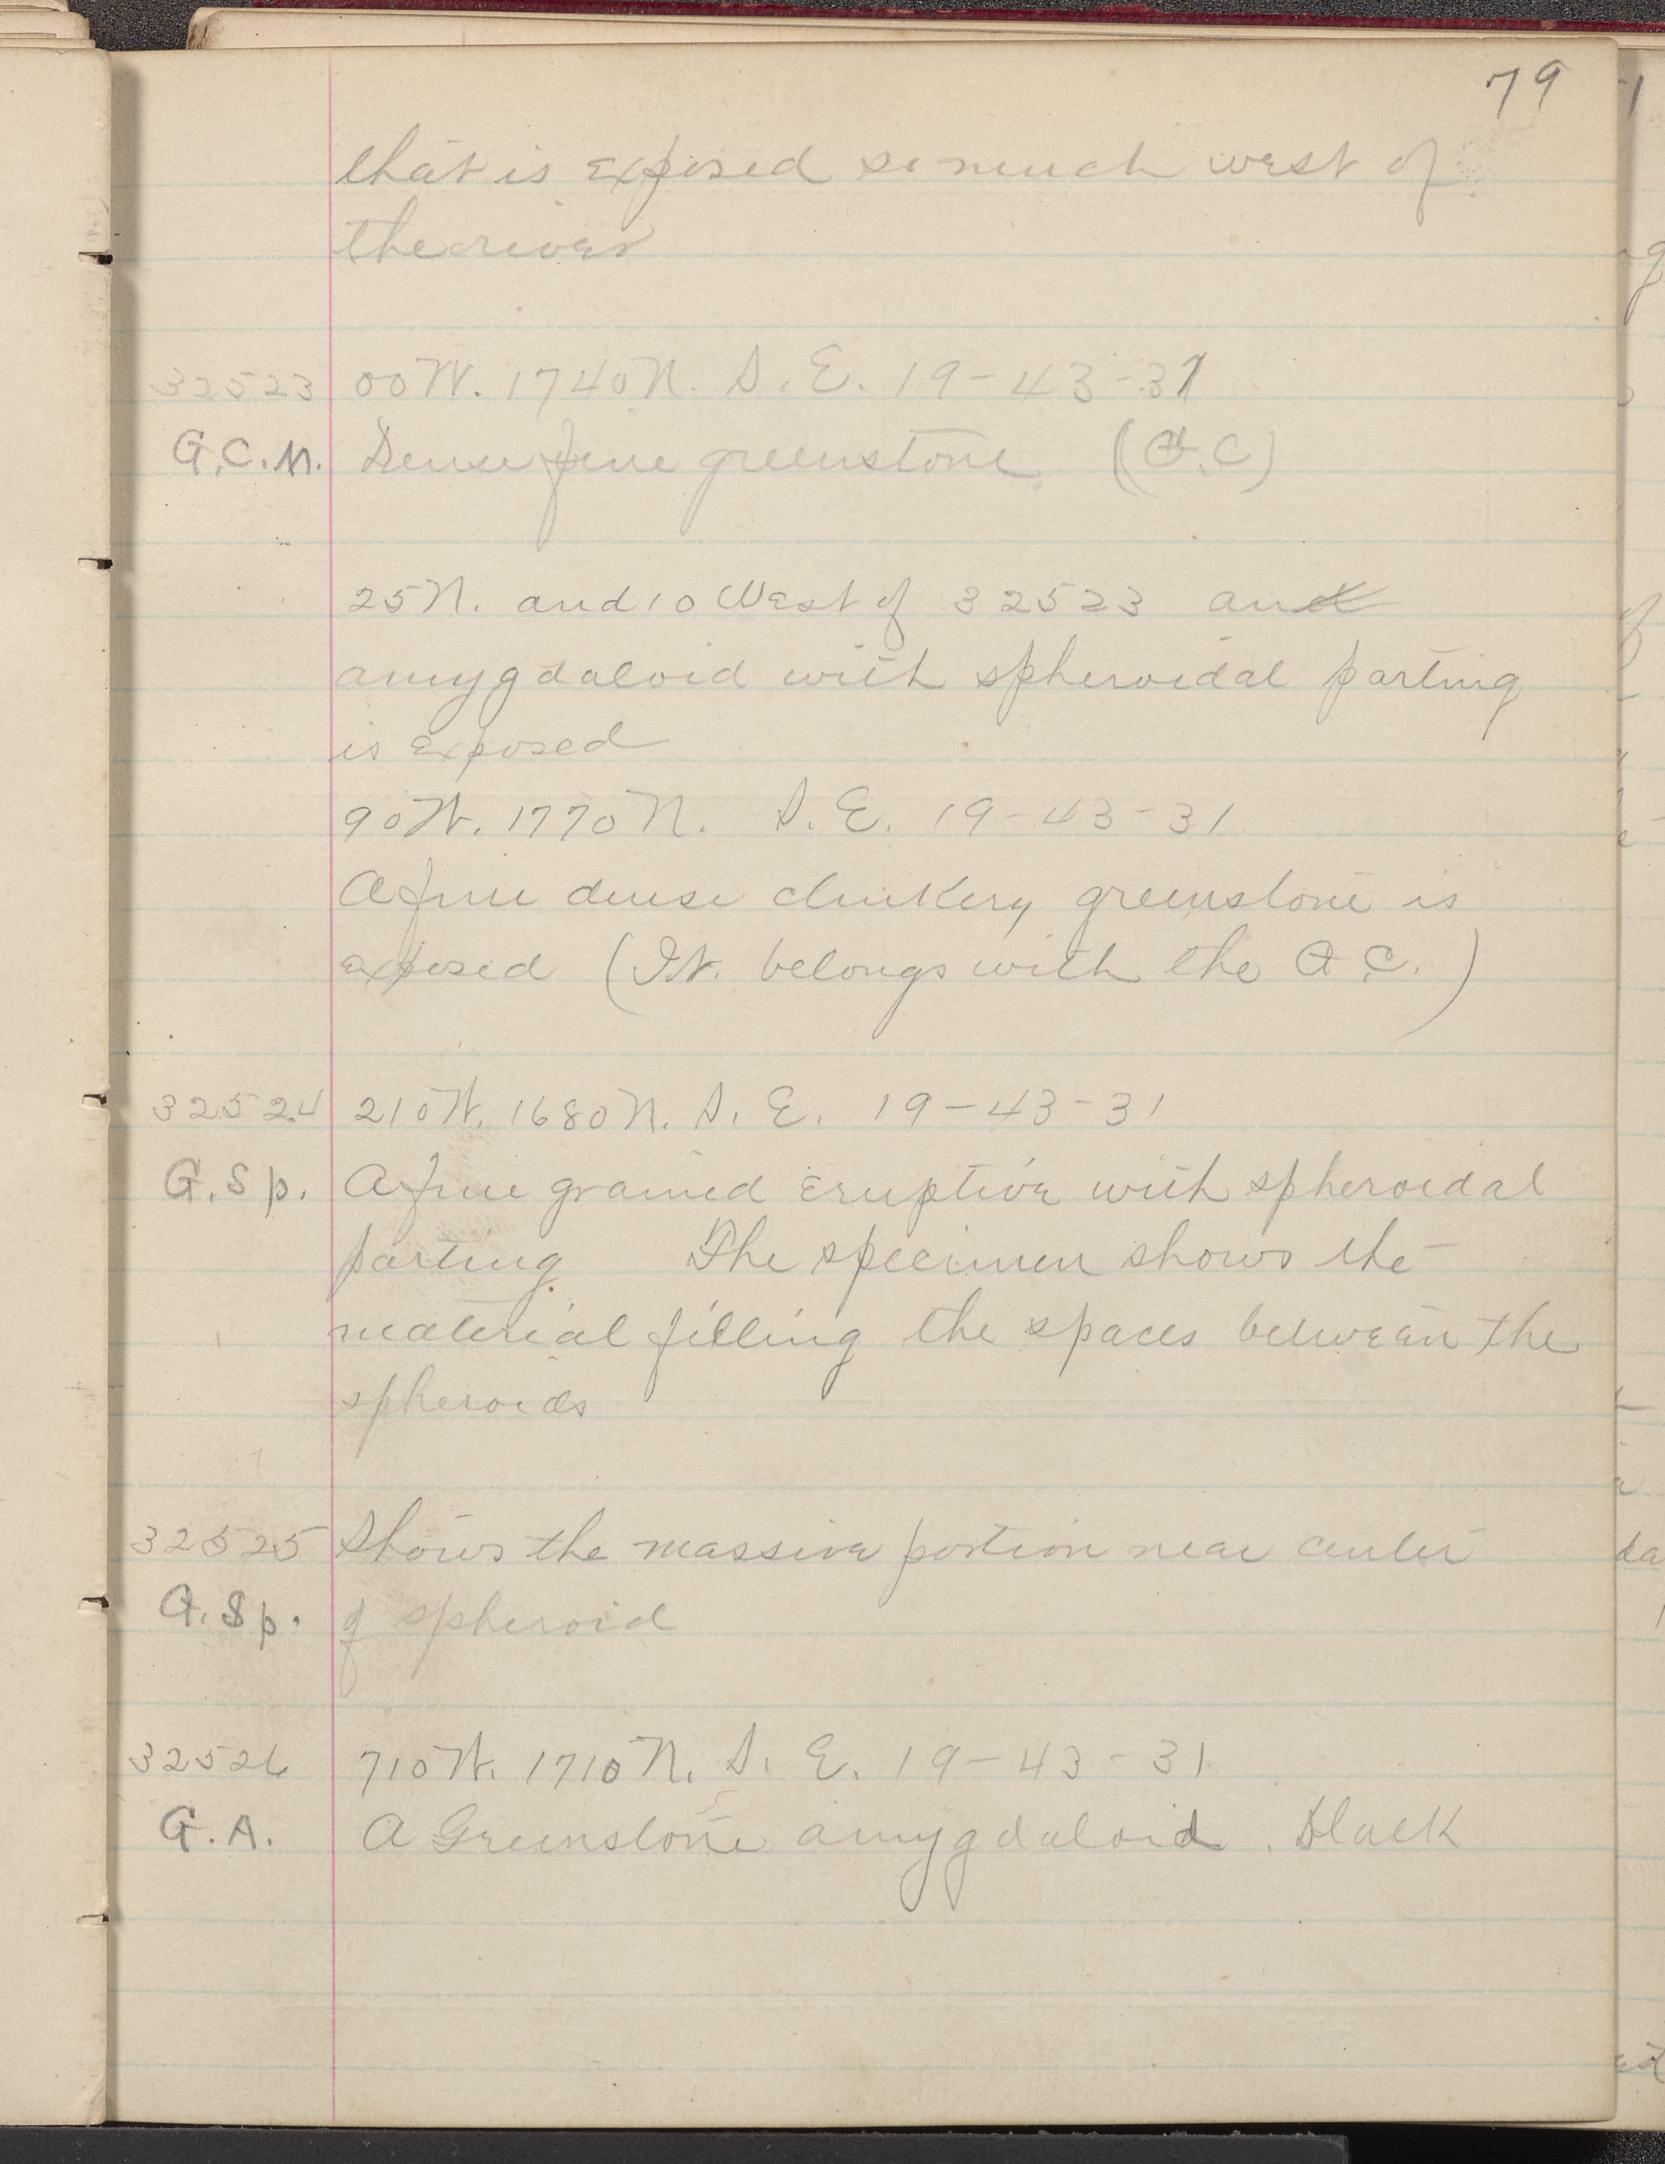 79
that is exposed so much west of
the river
32523 00W. 1740N. S.E. 19-43-31
G.C.N. Dense fine greenstone (G.C)
25N. and 10 West of 32523 an
amygdaloid with spheroidal parting
is exposed
90W. 1770N. S.E. 19-43-31
A fine dense clinkery greenstone is
exposed (It. belongs with the G.C.)
32524 210W. 1680N. S.E. 19-43-31
G.Sp. A fine grained eruptive with spheroidal
parting. The specimen shows the
material filling the spaces between the
spheroids
32525 Shows the massive portion near center
G.Sp. of spheroid
32526 710W. 1710N. S.E. 19-43-31
G.A. A Greenstone amygdaloid. Black